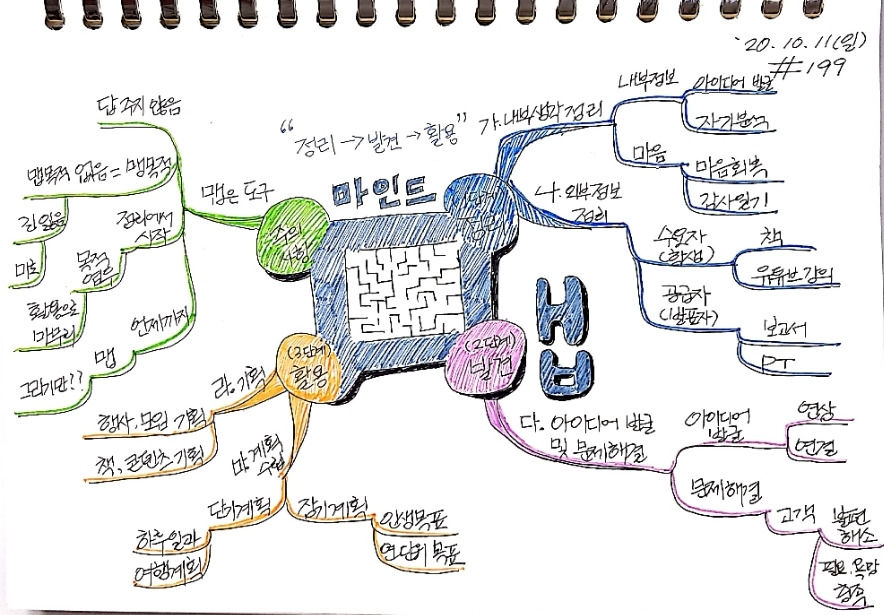 '20.10.11(일)
#199
"정리→발견→활용"
마인드
맵
(1단계)
정리
가.내부생각정리
내부정보
아이디어 발굴
자기분석
마음
마음회복
감사일기
나.외부정보
정리
수요자
(학생)
책
유튜브.강의
공급자
(발표자)
보고서
PT
(2단계)
발견
다.아이디어 발굴
및 문제해결
아이디어
발굴
연상
연결
문제해결
고객
불편
해소
필요.욕망
충족
(3단계)
활용
라.기획
행사.모임 기획
책,콘텐츠기획
마.계획
수립
단기계획
하루일과
여행계획
장기계획
인생목표
연단위 목표
주의
사항
맵은 도구
답 주지 않음
맵목적 없음=맹목적
정리에서
시작
길 잃음
미로
목적
염두
활용으로
마무리
언제까지
맵
그리기만??